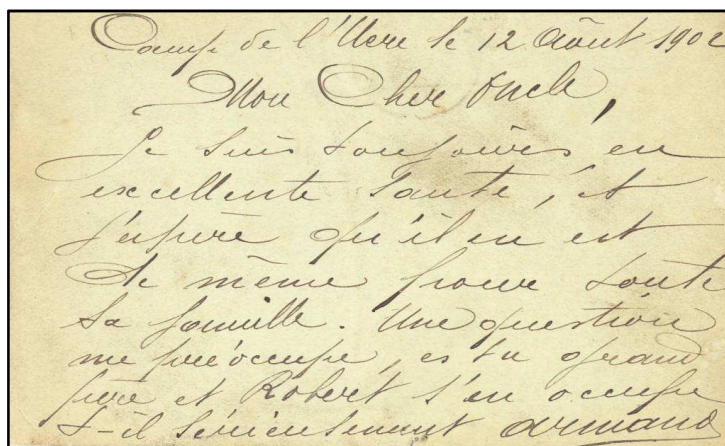 Camp de l'Ucre le 12 Août 1902
Mon Cher Oncle,
Je suis toujours en
excellente santé, et
j'espère qu'il en est
de même pour toute
ta famille. Une question
me préoccupe, es tu grand
père et Robert s'en occupe
t-il sérieusement Armand